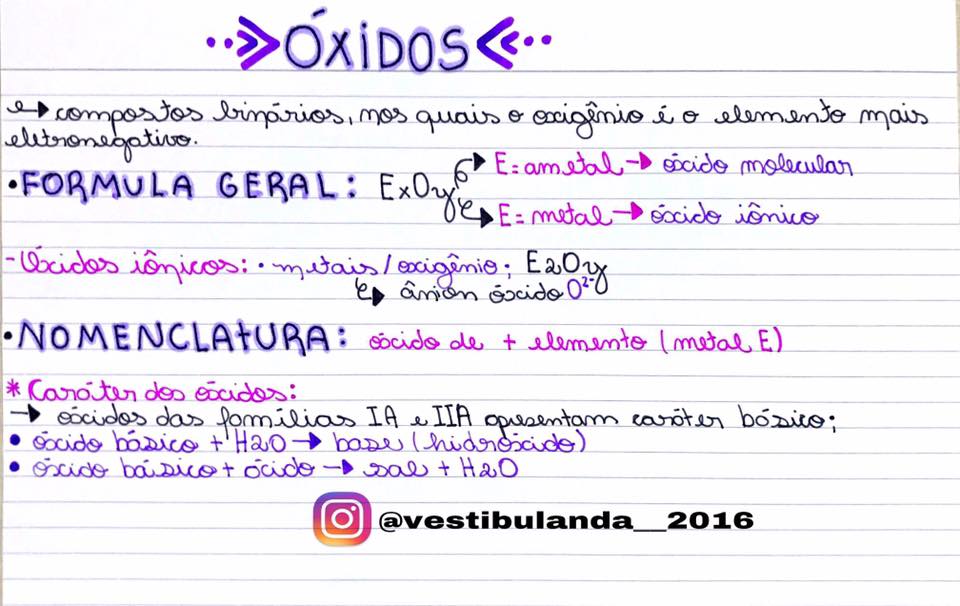 ÓXIDOS
compostos binários, nos quais o oxigênio é o elemento mais
eletronegativo.
• FORMULA GERAL: ExOy
E = ametal → óxido molecular
E = metal → óxido iônico
- Óxidos iônicos: • metais/oxigênio; E2Oy
ânion óxido O²⁻
• NOMENCLATURA: óxido de + elemento (metal E)
* Caráter dos óxidos:
→ óxidos das famílias IA e IIA apresentam caráter básico;
• óxido básico + H2O → base (hidróxido)
• óxido básico + ácido → sal + H2O
@vestibulanda__2016